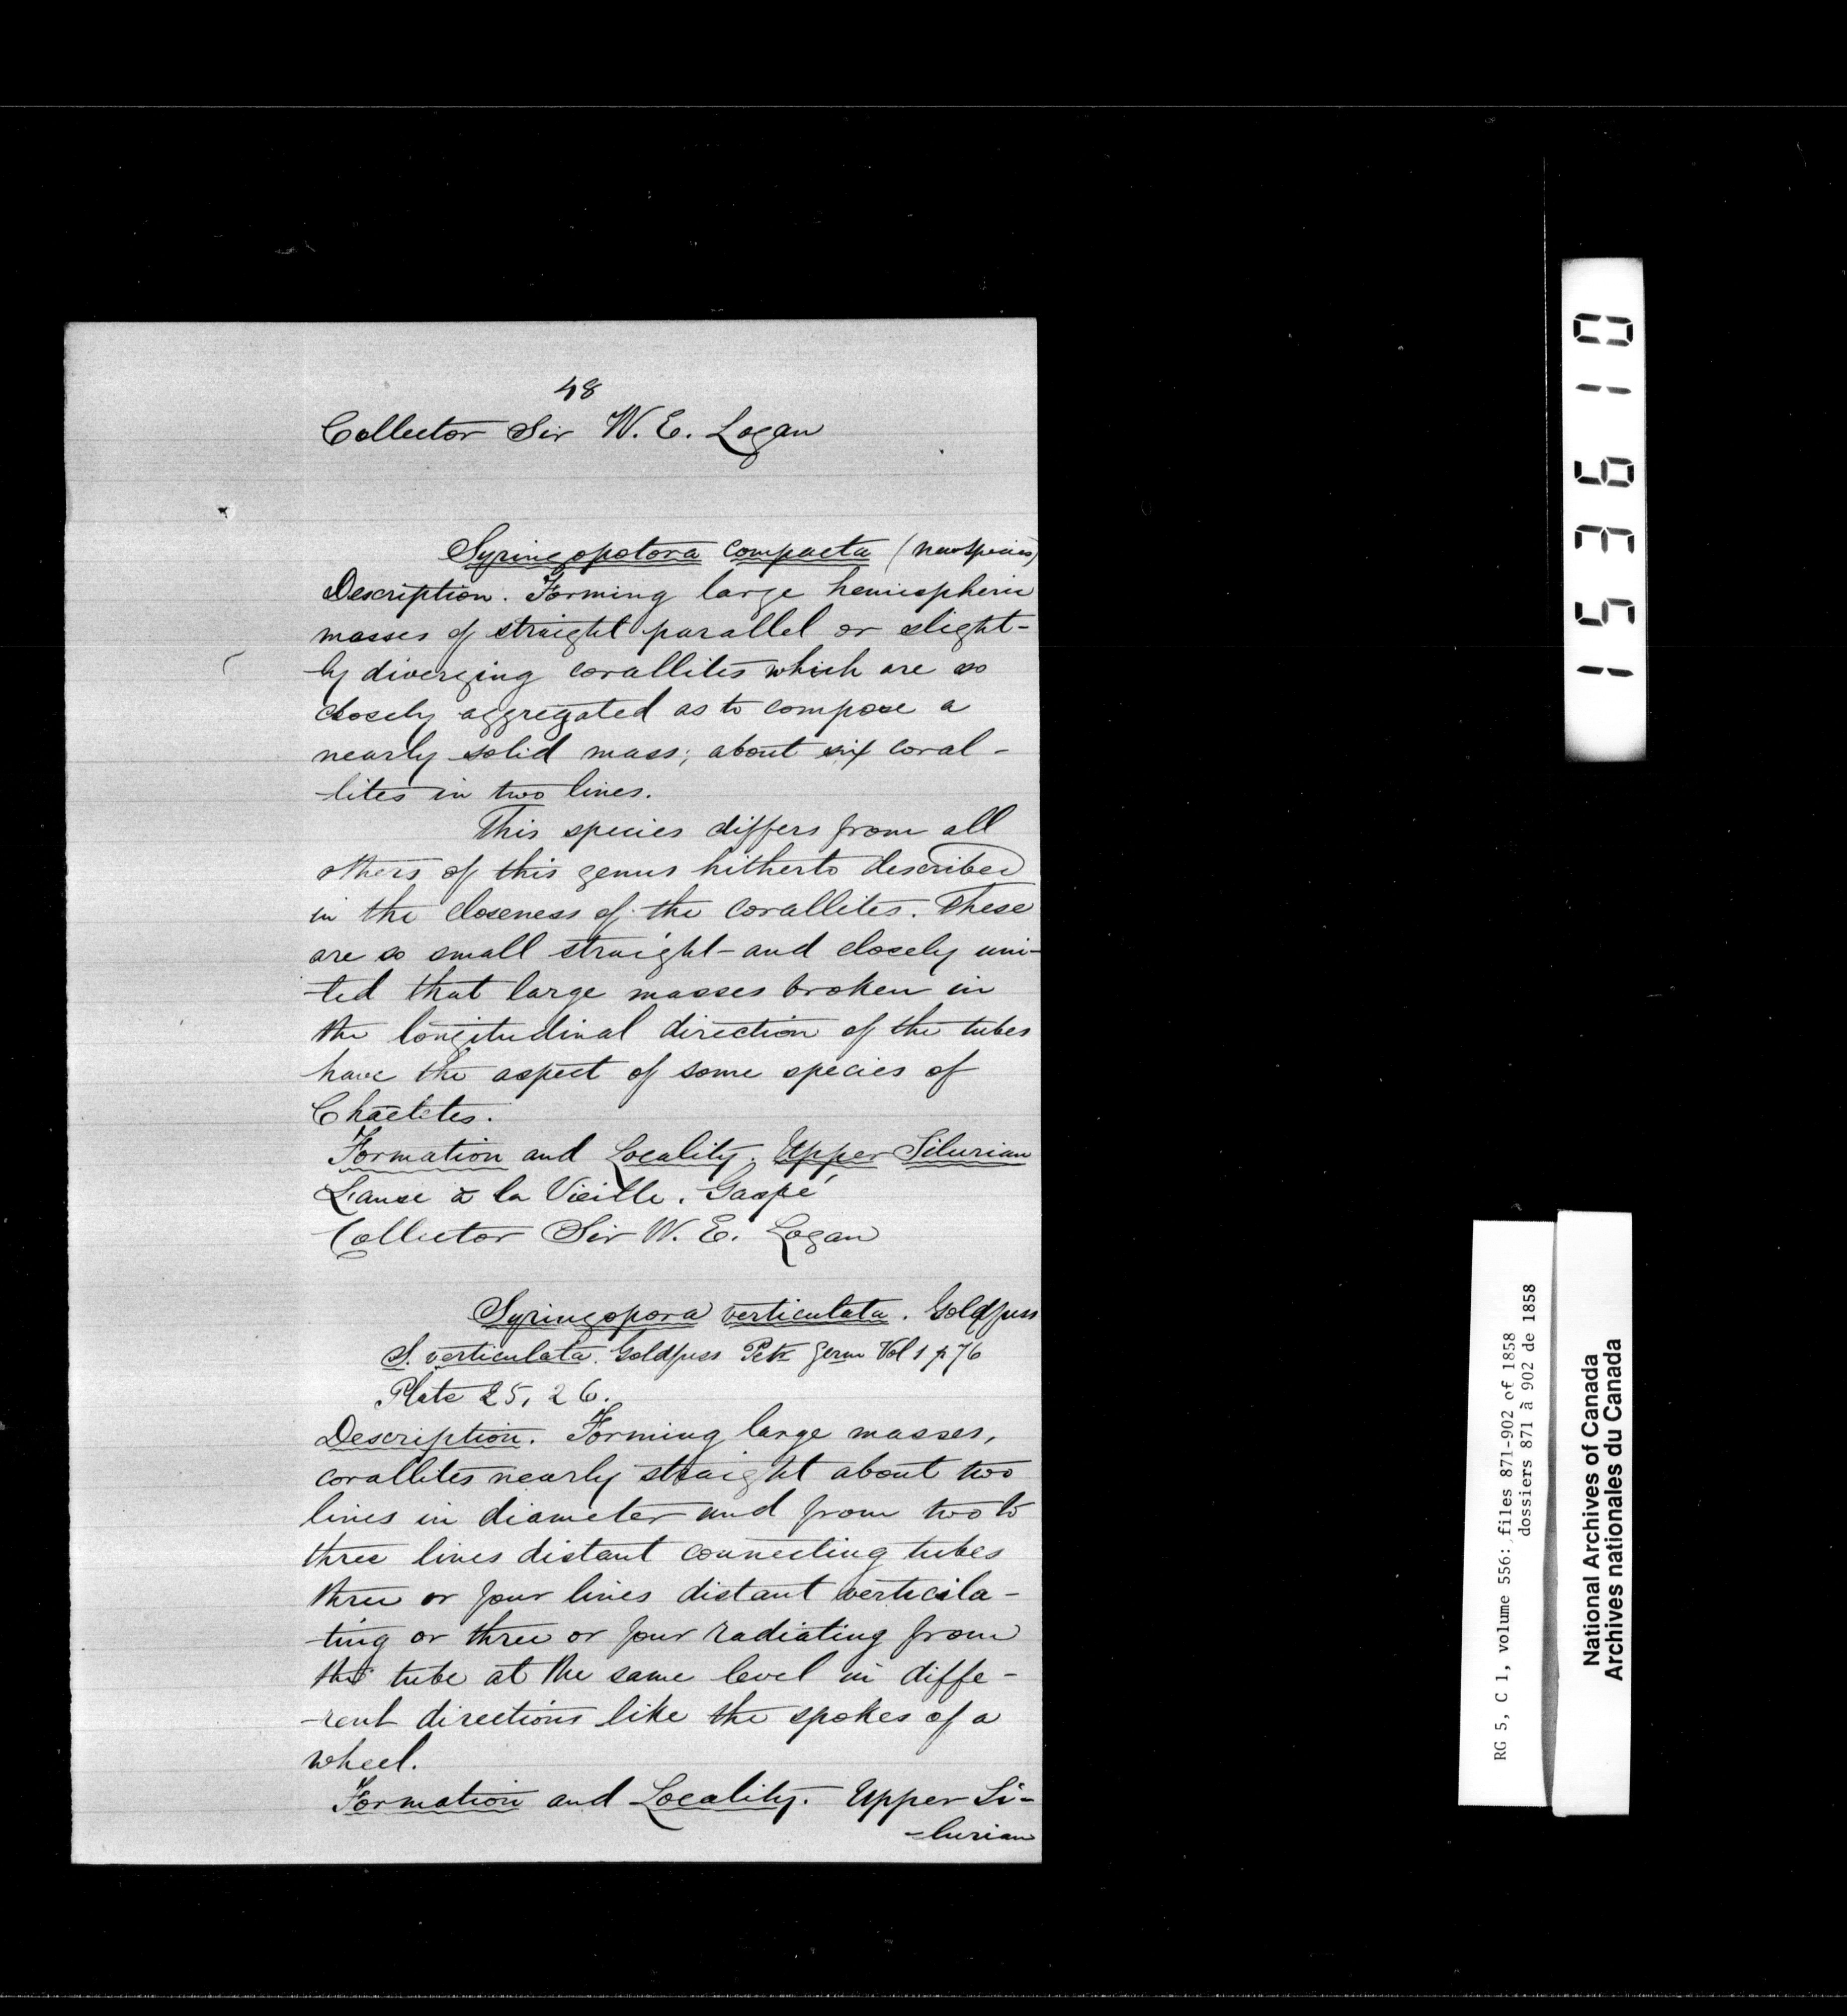 48
Collector Sir W. E. Logan
Syringopotora compacta (new species)
Description. Forming large hemispheric
masses of straight parallel or slight-
ly diverging corallites which are so
closely aggregated as to compose a
nearly solid mass; about six coral-
-lites in two lines.
This species differs from all
others of this genus hitherto described
in the closeness of the corallites. These
are so small straight and closely uni-
-ted that large masses broken in
the longitudinal direction of the tubes
have the aspect of some species of
Chaetetes.
Formation and Locality. Upper Silurian
L'anse à la Vieille. Gaspé
Collector Sir W. E. Logan
Syringopora verticulata. Goldfuss
S. verticulata. Goldfuss Petr Germ Vol 1 p 76
Plate 25, 26.
Description. Forming large masses,
corallites nearly straight about two
lines in diameter and from two to
three lines distant connecting tubes
three or four lines distant verticila-
-ting or three or four radiating from
the tube at the same level in diffe-
-rent directions like the spokes of a
wheel.
Formation and Locality. Upper Si-
-lurian
153610
RG 5, C 1, volume 556: files 871-902 of 1858
dossiers 871 à 902 de 1858
National Archives of Canada
Archives nationales du Canada